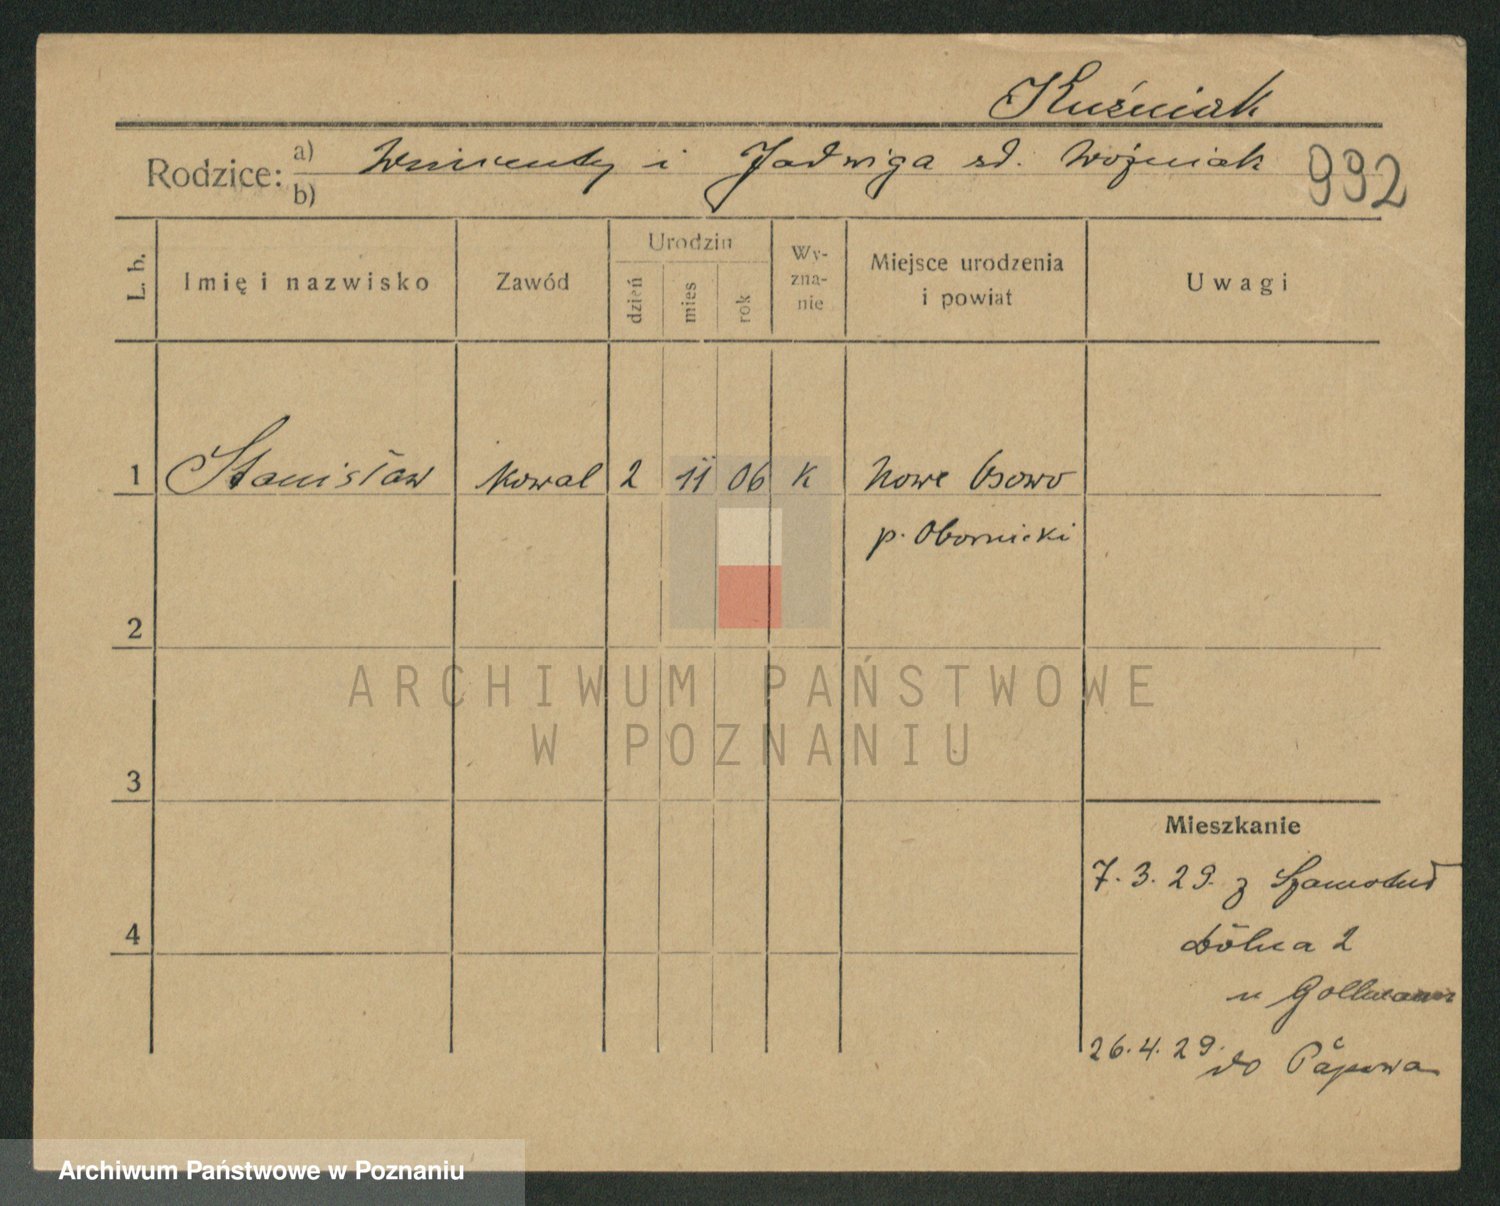 Kuźniak
Rodzice: a) Wincenty i Jadwiga zd. Woźniak 992
b)
L. b. Imię i nazwisko Zawód Urodzin dzień mies rok Wy-zna-nie Miejsce urodzenia i powiat Uwagi
1 Stanisław kowal 2 11 06 k Nowe Osowo
p. Obornicki
2
ARCHIWUM PAŃSTWOWE
W POZNANIU
3
Mieszkanie
7.3.29. z Szamotuł
4
Dolna 2
u
26.4.29. do
Archiwum Państwowe w Poznaniu